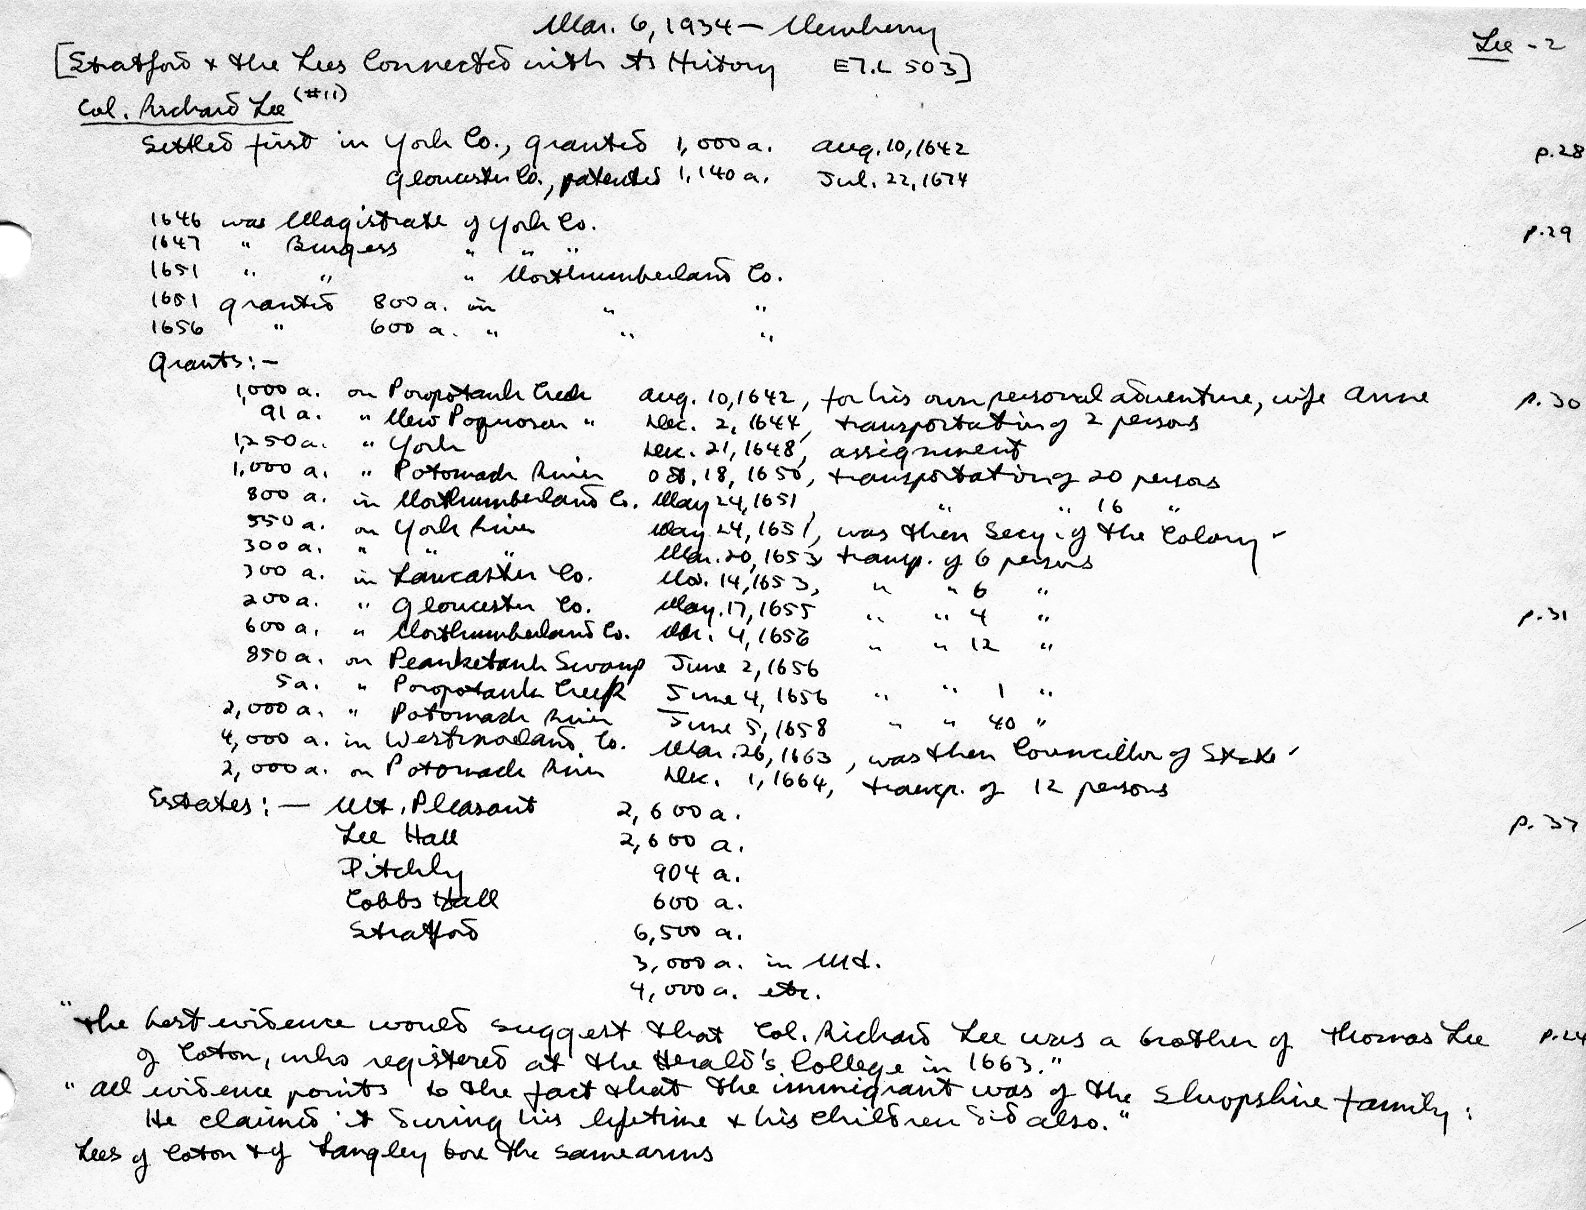 Mar. 6, 1934 — Newberry
Lee - 2
[Stratford & the Lees Connected with its History E7.L 503]
Col. Richard Lee (#11)
Settled first in York Co., granted 1,000 a. Aug. 10, 1642 p.28
Gloucester Co., patented 1,140 a. Jul. 22, 1674
1646 was Magistrate of York Co. p.29
1647 " Burgess " " "
1651 " " " Northumberland Co.
1651 granted 800 a. in " "
1656 " 600 a. " " "
Grants:—
1,000 a. on Poropotank Creek Aug. 10, 1642, for his own personal adventure, wife Anne p.30
91 a. " New Poquoson " Dec. 2, 1644, transportating of 2 persons
1,250 a. " York Dec. 21, 1648, assignment
1,000 a. " Potomack River Oct. 18, 1650, transportating of 20 persons
800 a. in Northumberland Co. May 24, 1651, " " 16 "
550 a. on York River May 24, 1651, was then Secy. of the Colony
300 a. " " " Mar. 20, 1653 transp. of 6 persons
300 a. in Lancaster Co. 14, 1653, " " 6 "
200 a. " Gloucester Co. May. 17, 1655 " " 4 " p.31
600 a. " Northumberland Co. 4, 1656 " " 12 "
850 a. on Peanketank Swamp June 2, 1656
5 a. " Poropotank Creek June 4, 1656 " " 1 "
2,000 a. " Potomack River June 5, 1658 " " 40 "
4,000 a. in Westmoreland Co. Mar. 26, 1663, was then Councillor of State
2,000 a. on Potomack River Dec. 1, 1664, transp. of 12 persons
Estates:— Mt. Pleasant 2,600 a. p.37
Lee Hall 2,600 a.
Ditchly 904 a.
Cobbs Hall 600 a.
Stratford 6,500 a.
3,000 a. in Md.
4,000 a. etc.
"The best evidence would suggest that Col. Richard Lee was a brother of Thomas Lee p.24
of Coton, who registered at the Herald's College in 1663."
"All evidence points to the fact that the immigrant was of the Shropshire family;
He claimed it during his lifetime & his children did also."
Lees of Coton & of Langley bore the same arms